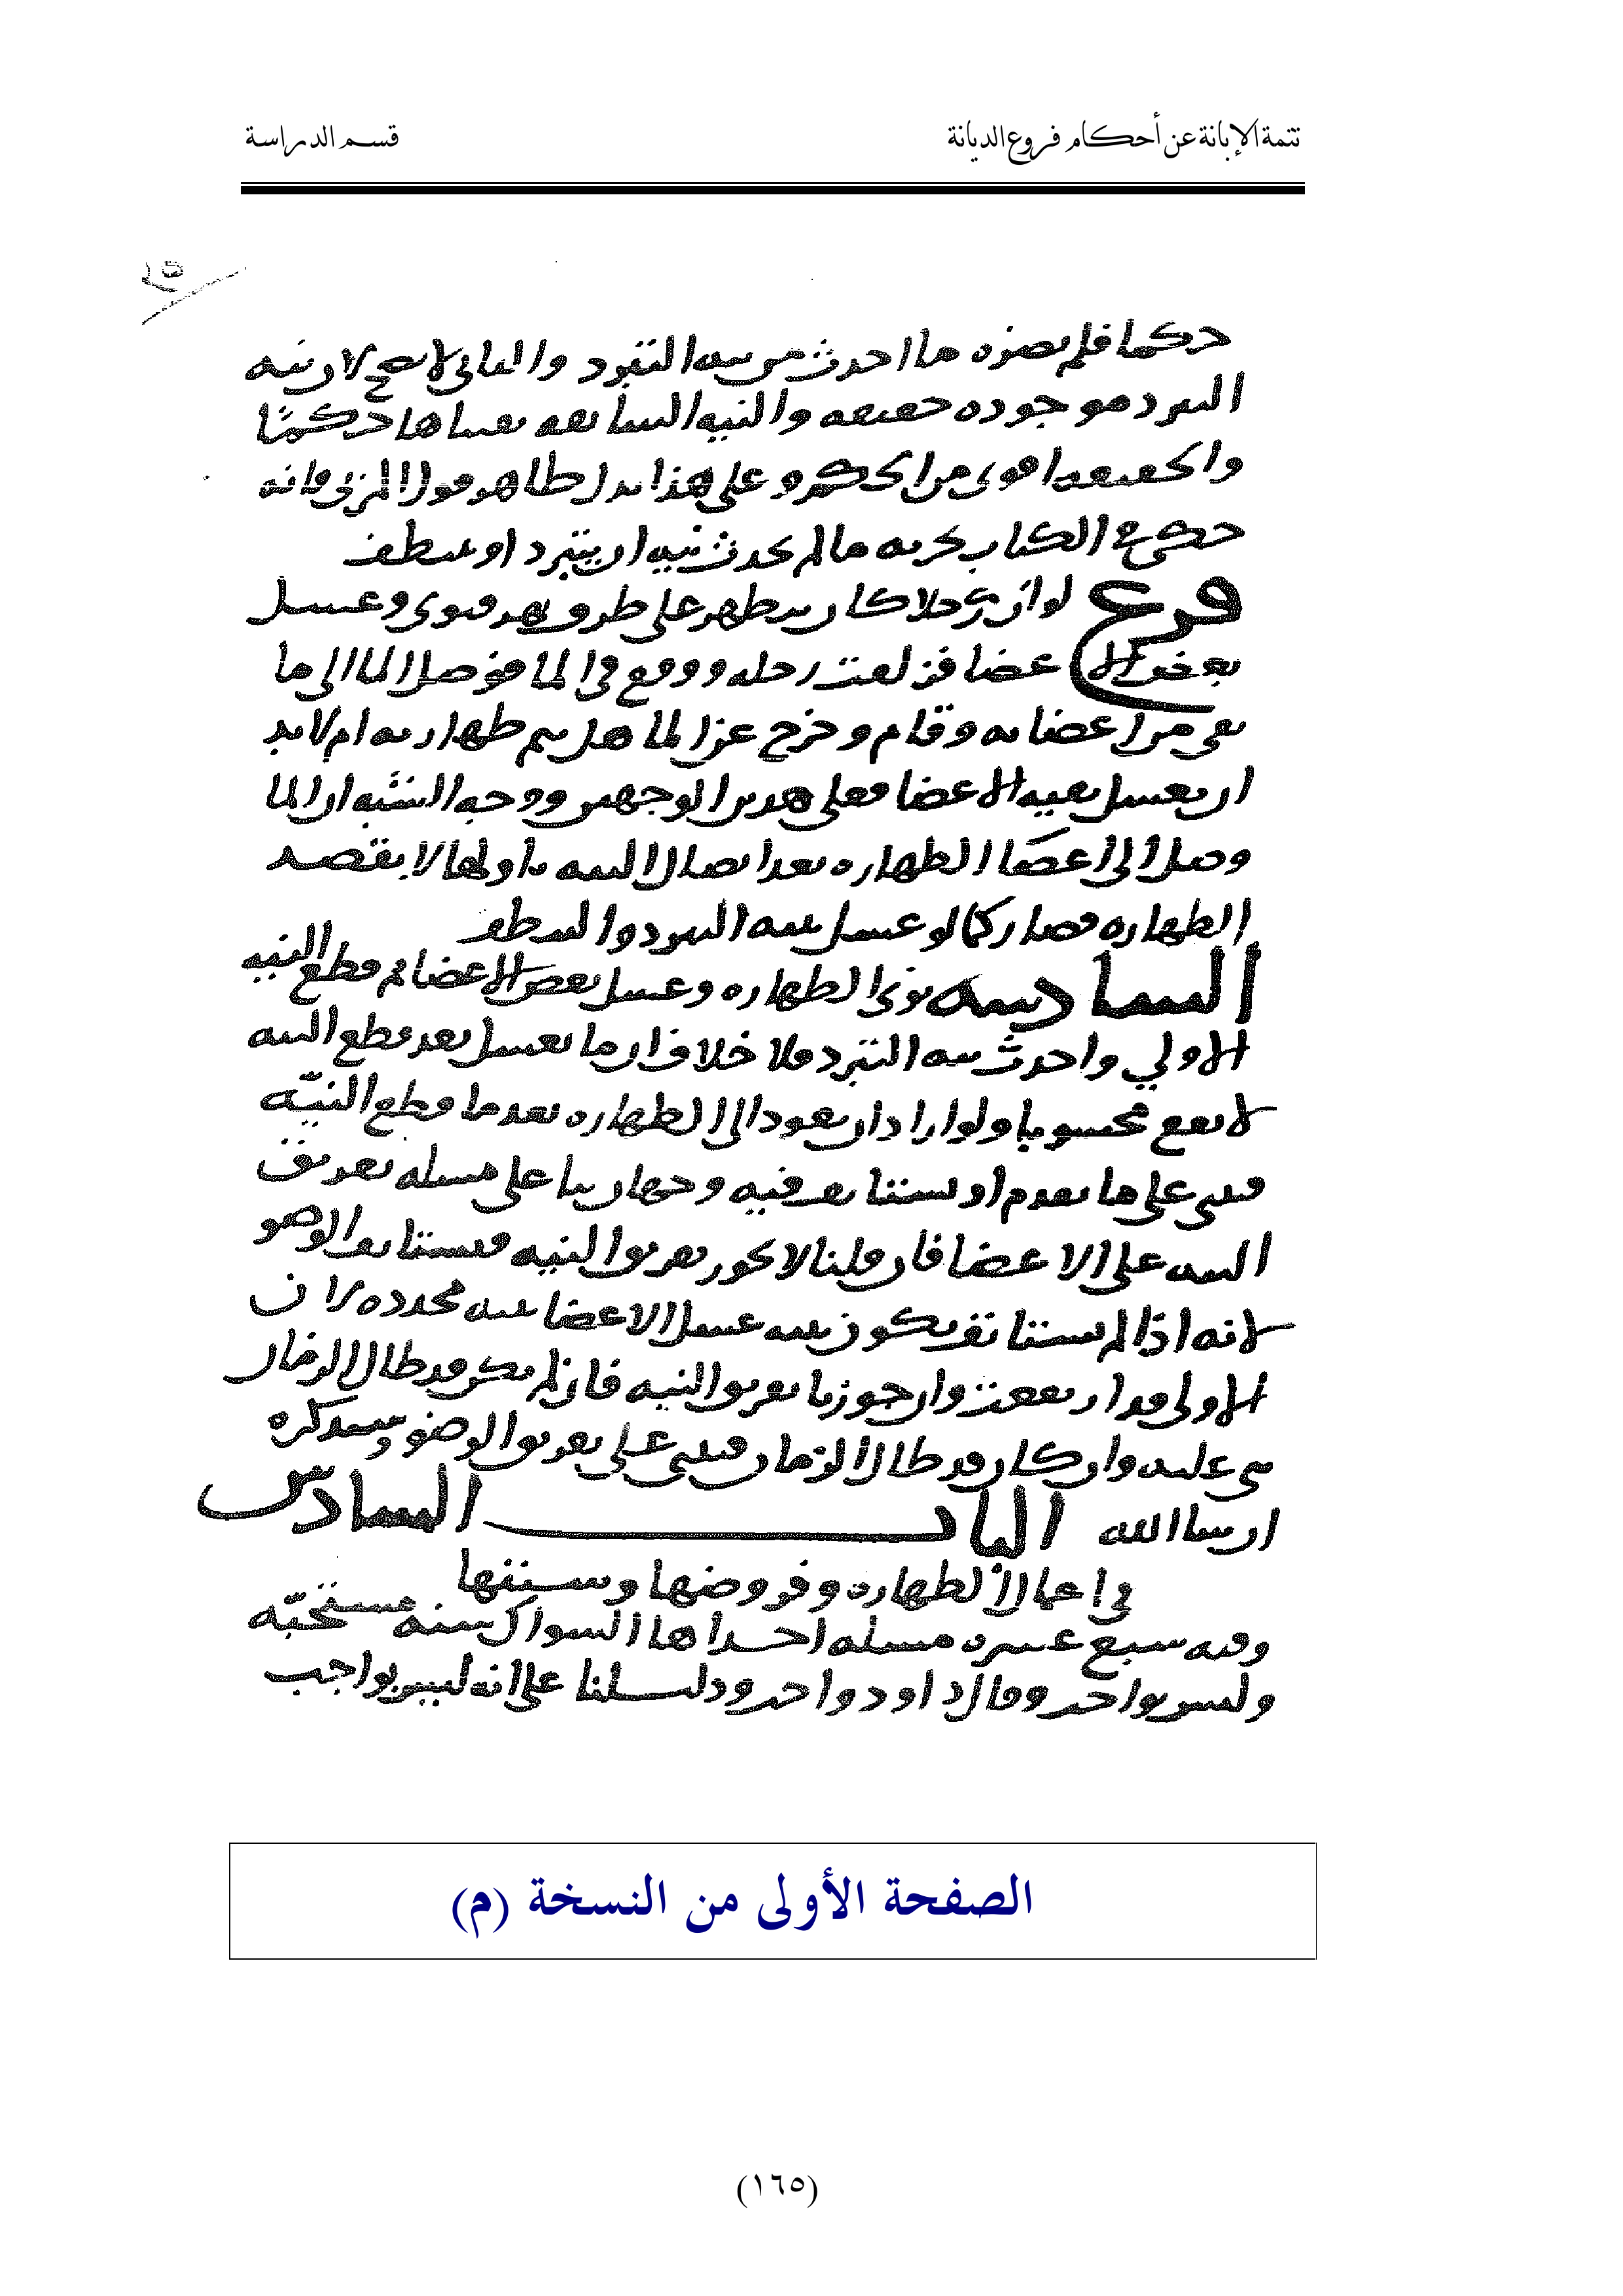 تتمة الإبانة عن أحكام فروع الديانة
قسم الدراسة
حكما فلم يضره ما احدث من نيه التبرد والثاني لا يصح لان نيه
التبرد موجوده حقيقه والنيه السابقه بقيناها حكمًا
والحقيقه اقوى من الحكم وعلى هذا يدل ظاهر قول المزني فانه
حكى ع الكتاب يجزيه ما لم يحدث نيه ان يتبرد او يتنظف
فرع لو ان رجلا كان يتطهر على طرف نهر فنوى وغسل
بعض الاعضا فزلقت رجله ووقع في الما فوصل الما الى ما
بقي من اعضايه وقام وخرج عن الما هل يتم طهارته ام لا بد
ان يغسل بقيه الاعضا فعلى هذين الوجهين ووجه الشبه ان الما
وصل الى اعضا الطهاره بعد اتصال النيه باولها لا بقصد
الطهاره فصار كما لو غسل بنيه التبرد والتنظف
السادسه نوى الطهاره وغسل بعض الاعضا ثم قطع النيه
الاولي واحدث نيه التبرد فلا خلاف ان ما يغسل بعد قطع النيه
لا يقع محسوبا ولو اراد ان يعود الى الطهاره بعد ما قطع النيّه
فيبني على ما تقدم او يستانف فيه وجهان بنا على مسله تفريق
النيه على الاعضا فان قلنا لا يجوز تفريق النيه فيستانف الوضو
لانه اذا لم يستانف يكون بقيه غسل الاعضا بنيه مجدده لان
الاولى قد ارتفعت وان جوزنا تفريق النيه فان لم يكن قد طال الزمان
بنى عليه وان كان قد طال الزمان فيبنى على تفريق الوضو وسنذكره
ان شا الله الباب السادس
في اعمال الطهاره وفروضها وسننها
وفيه سبع عشره مسله احداها السواك سنه مستحبّه
وليس بواجب وقال داود واجب ودليلنا على انه ليس بواجب
الصفحة الأولى من النسخة (م)
(١٦٥)